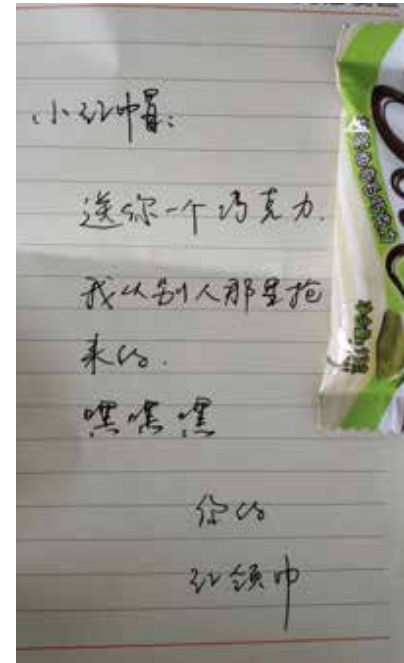 小红帽：
送你一个巧克力.
我从别人那里抢
来的.
嘿嘿嘿
你的
红领巾